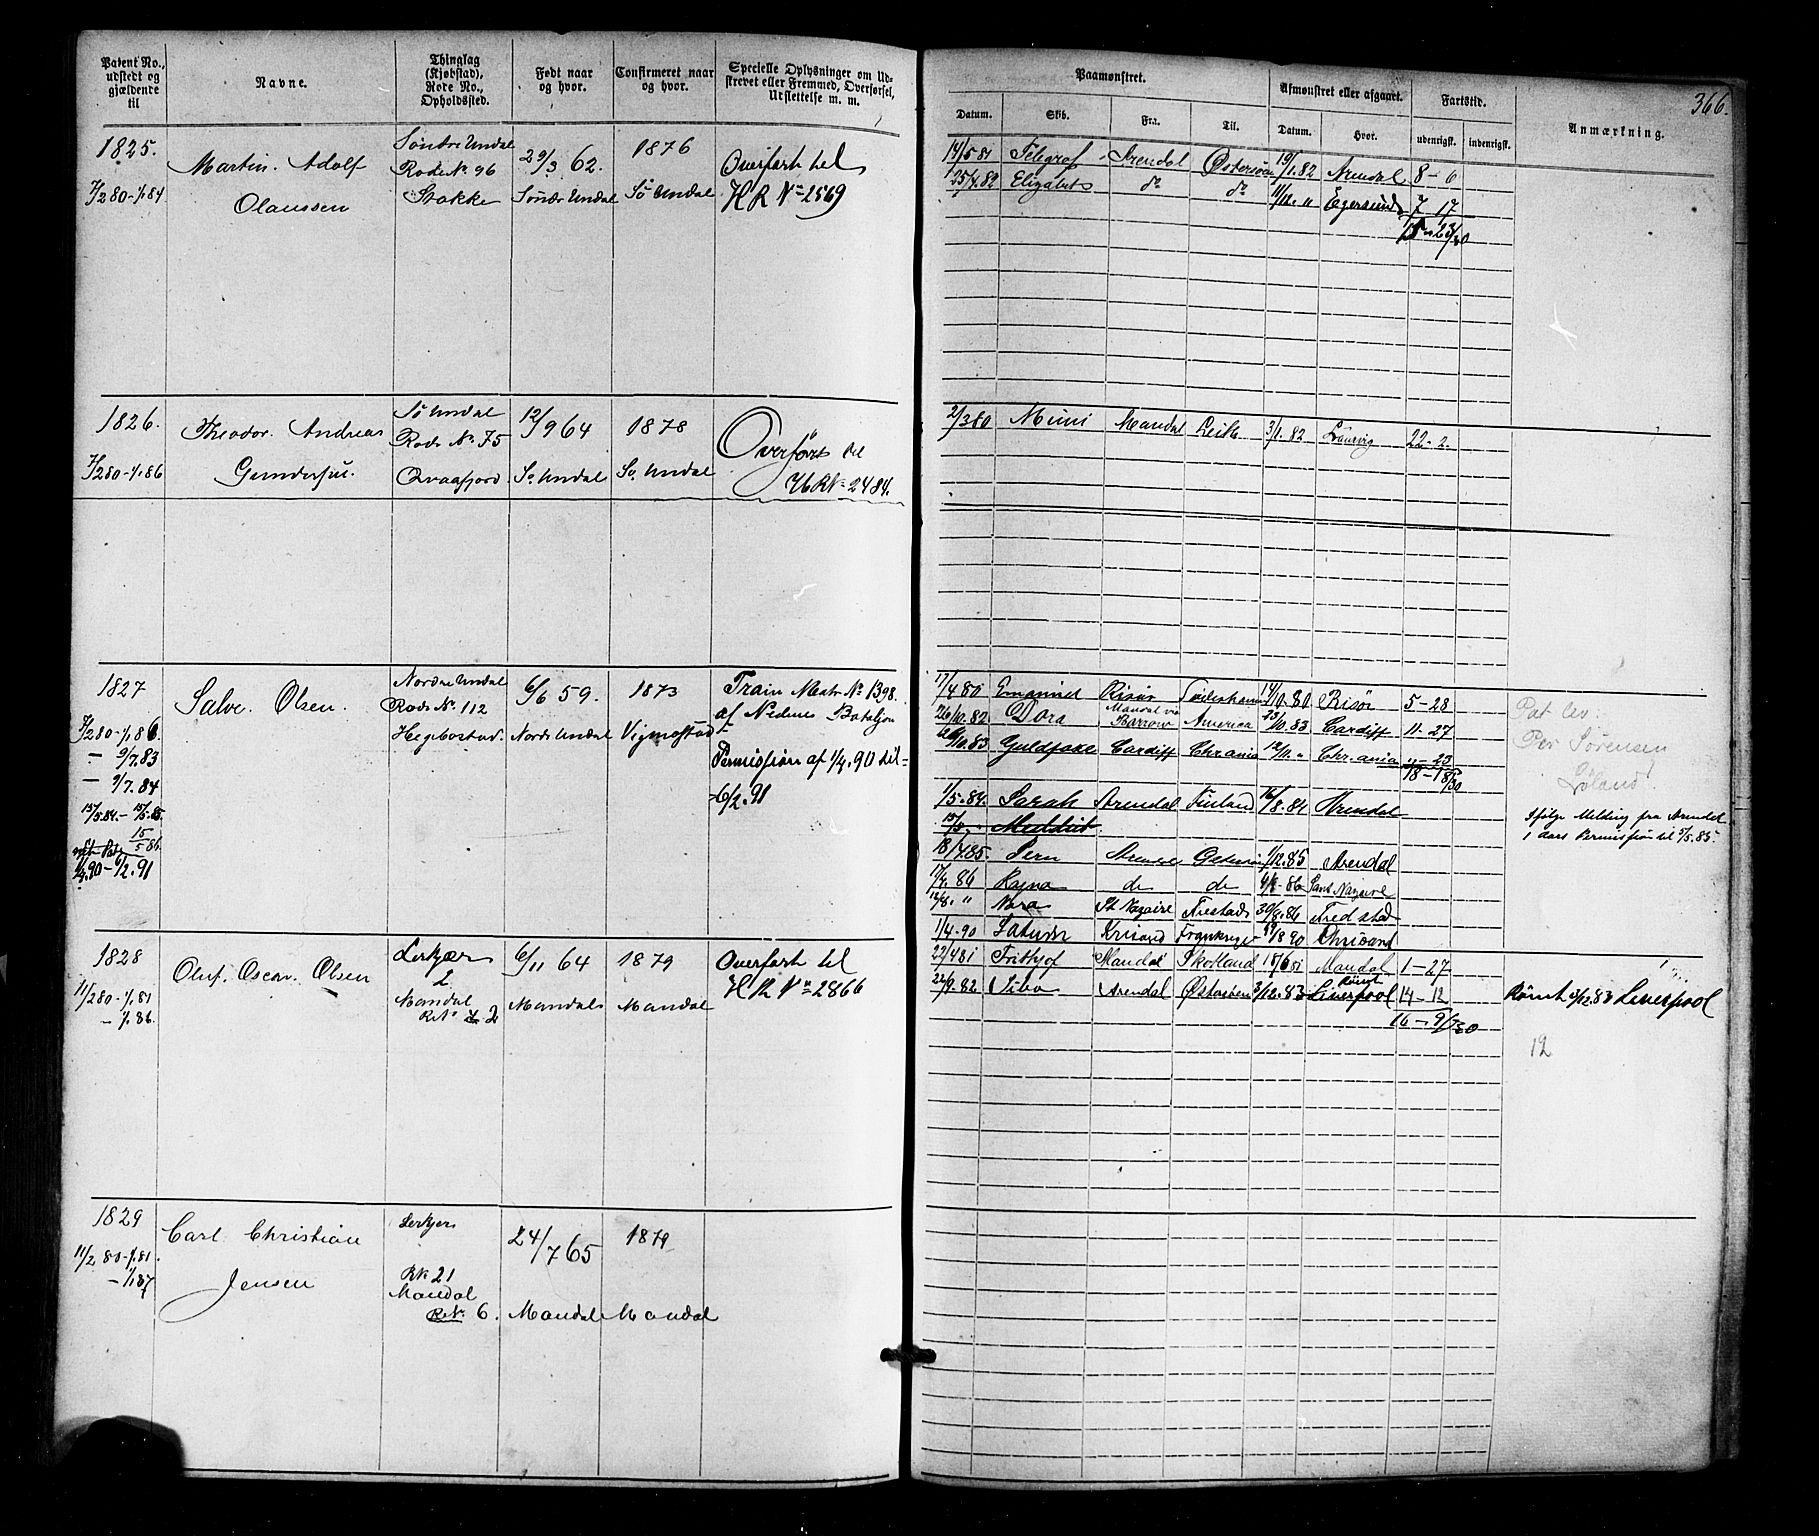 Patent No., udstedt og gjældende til
Navne.
Thinglag (Kjøbstad), Rode No., Opholdssted.
Født naar og hvor.
Confirmeret naar og hvor.
Specielle Oplysninger om Udskrevet eller Fremmed, Overførsel, Udslettelse m. m.
Paamønstret.
Afmønstret eller afgaaet.
Fartstid.
Anmærkning.
366.
Datum. Skib. Fra. Til. Datum. Hvor. udenrigsk. indenrigsk.
1825.
7/2 80 - 1/1 84
Martin Adolf
Olaussen
Søndre Undal
Rode No 96
Stokke
29/3 62.
Søndr Undal
1876
Sø Undal
Overført til
HR No 2569
14/5 81 Telegraf Arendal Østersøen 19/1 82 Arendal 8 - 6
25/4 82 Elizabets do do 11/12 " Egersund 7 17
15 - 23/30
1826.
7/2 80 - 1/1 86
Theodor Andreas
Gundersen.
Sø Undal
Rode No 75
Qvaafjord
12/9 64
Sø Undal
1878
Sø Undal
Overført til
HR No 2484.
2/3 80 Mimi Mandal Leith 3/1. 82 Laurvig 22 - 2.
1827
7/2 80 - 1/1 86
- 9/7. 83
- 9/7. 84
15/5 84. - 15/5. 85.
15/5 86
1/4 90 - 6/2. 91
Salve Olsen.
Nordre Undal
Rode No. 112
Hegbostad.
6/6 59.
Nordr Undal
1873
Vigmostad
Train Matr No 1398.
af Nedenes Bataljon
Permission af 1/4. 90 til
6/2. 91
17/4 80 Emanuel Risør Søderhamn 14/10. 80 Risør 5 - 28
26/10. 82 Dora Mandal via Barrow America 23/10. 83 Cardiff 11 - 27
26/10. 83 Guldfaxe Cardiff Chrania 12/11. " Chrania " - 23
18 - 18/30
1/5. 84. Sarah Arendal Finland 16/8. 84 Arendal
15/5 "
18/4 85. Arendal 1/12. 85 Arendal
17/4. 86 Ragna de de 4/8 - 86 Sant Nazaire
12/8. " Nora St Nazaire Frestads 30/8. 86 Fredstad
1/4 - 90 Saturn Krisand Frankrige 13/8 90 Chrisand
Pat lev.
Per Sørensen
Løland!
Ifølge Melding fra Arendal
1 Aars Permission til 5/5. 85.
1828
11/2 80 - 1/1. 81
- 1/1. 86.
Oluf Oscar Olsen
Lerkjær
2
Mandal
R. No 2
6/11 64
Mandal
1879
Mandal
Overført til
HR No 2866
22/4 81 Frithjof Mandal Skotland 18/6 81 Mandal 1 - 27
22/9. 82 Arendal Østersøen 3/12. 83 Rømt Liverpool 14 - 12
16 - 9/30
Rømt 3/12. 83 Liverpool
12
1829
11/2 80 - 1/1. 81.
- 1/1 87
Carl Christian
Jensen
Lerkjær
RN 21
Mandal
R. No. 6.
24/7 65
Mandal
1879
Mandal